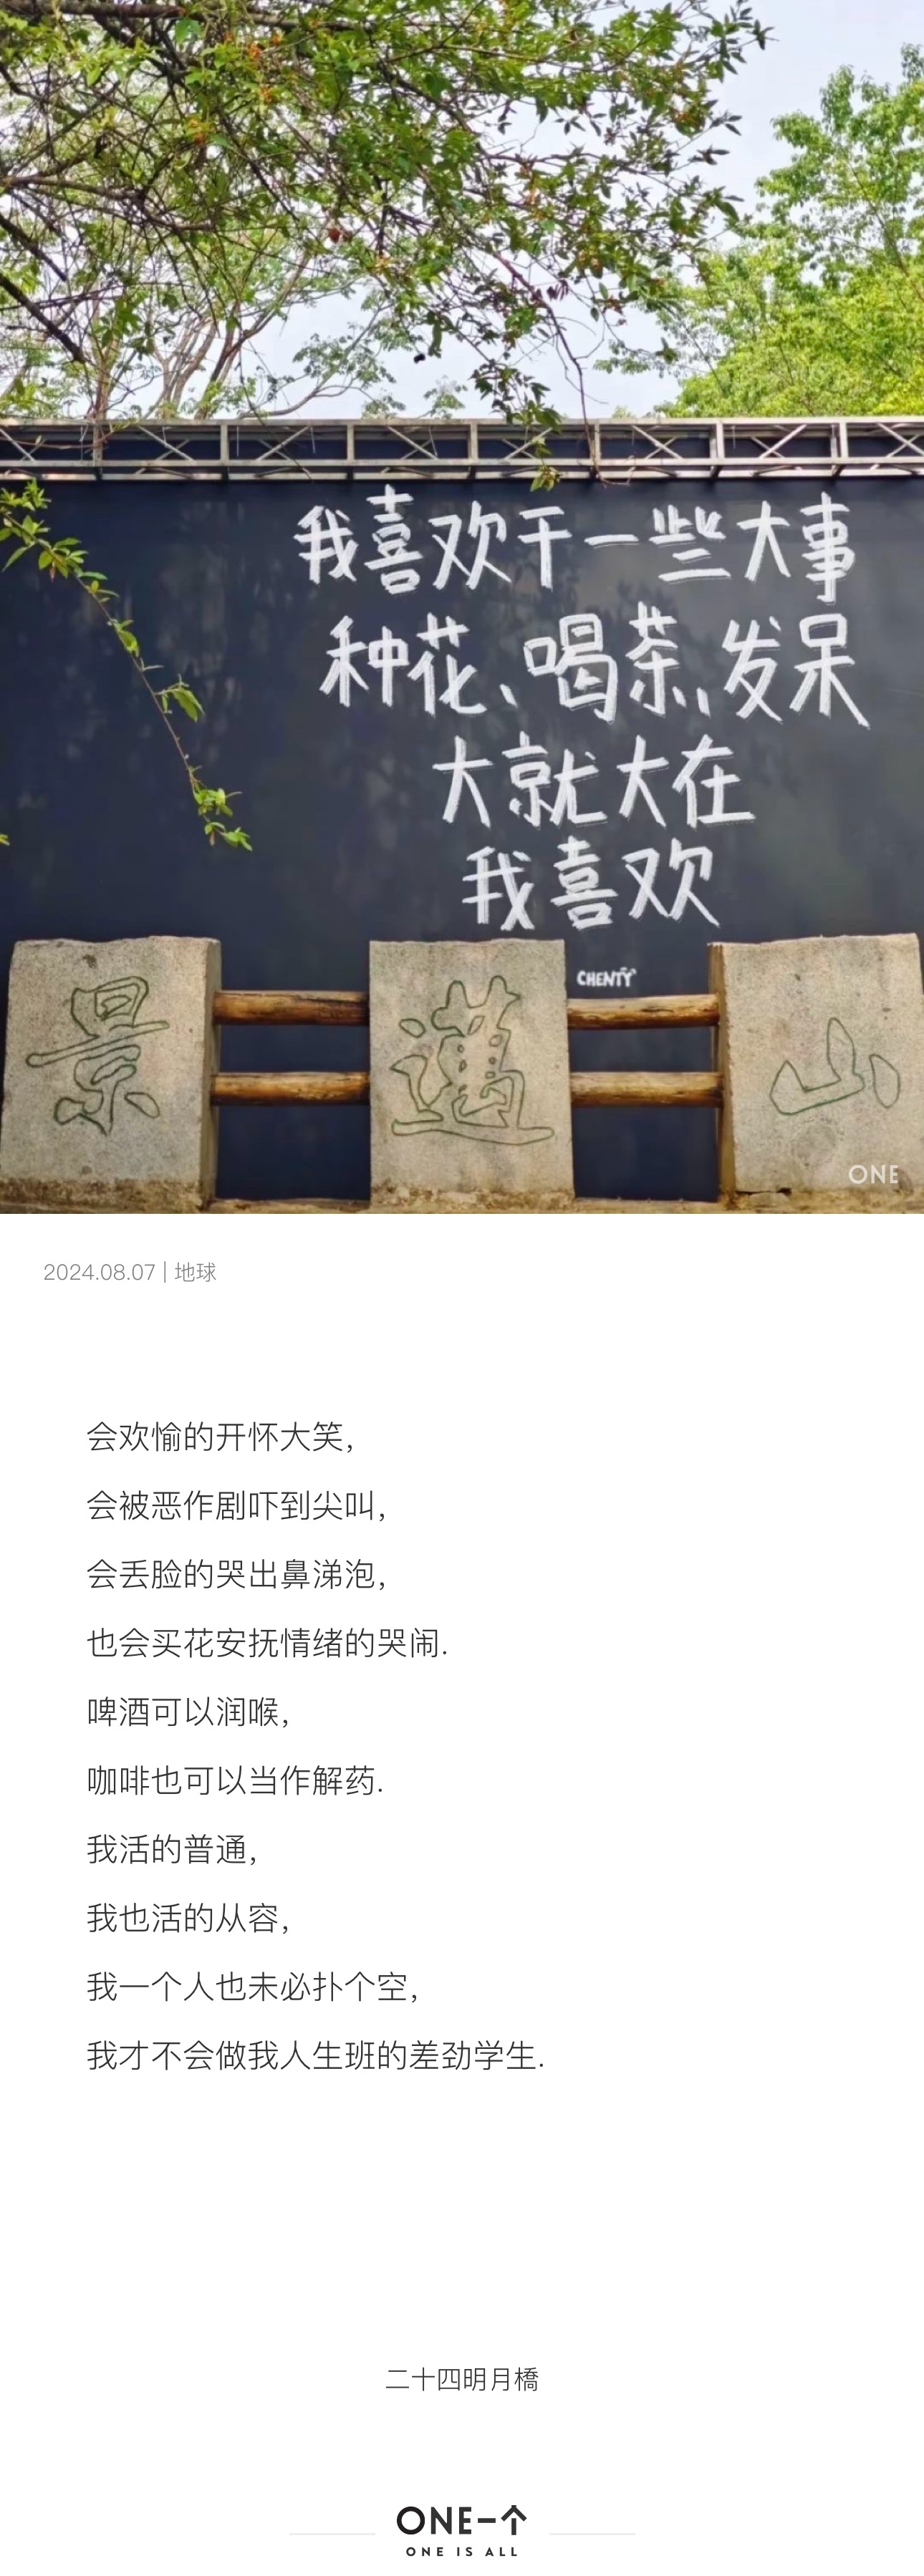 我喜欢干一些大事
种花、喝茶、发呆
大就大在
我喜欢
CHENTY
景 邁 山
ONE
2024.08.07 | 地球
会欢愉的开怀大笑,
会被恶作剧吓到尖叫,
会丢脸的哭出鼻涕泡,
也会买花安抚情绪的哭闹.
啤酒可以润喉,
咖啡也可以当作解药.
我活的普通,
我也活的从容,
我一个人也未必扑个空,
我才不会做我人生班的差劲学生.
二十四明月橋
ONE一个
ONE IS ALL